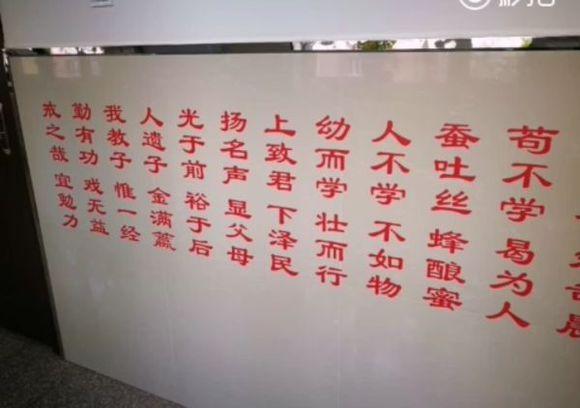 苟不学 曷为人
蚕吐丝 蜂酿蜜
人不学 不如物
幼而学 壮而行
上致君 下泽民
扬名声 显父母
光于前 裕于后
人遗子 金满籯
我教子 惟一经
勤有功 戏无益
戒之哉 宜勉力